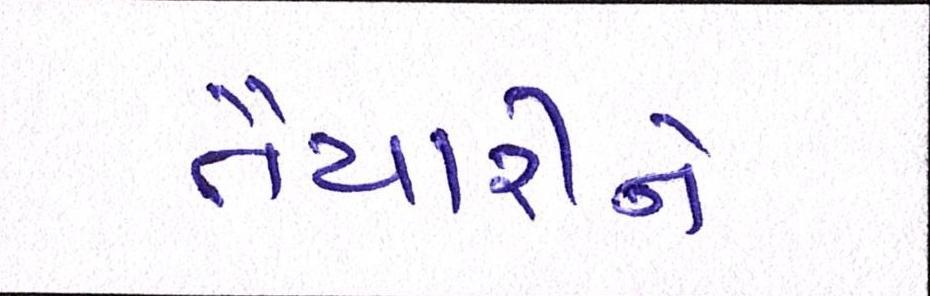 તૈયારીને